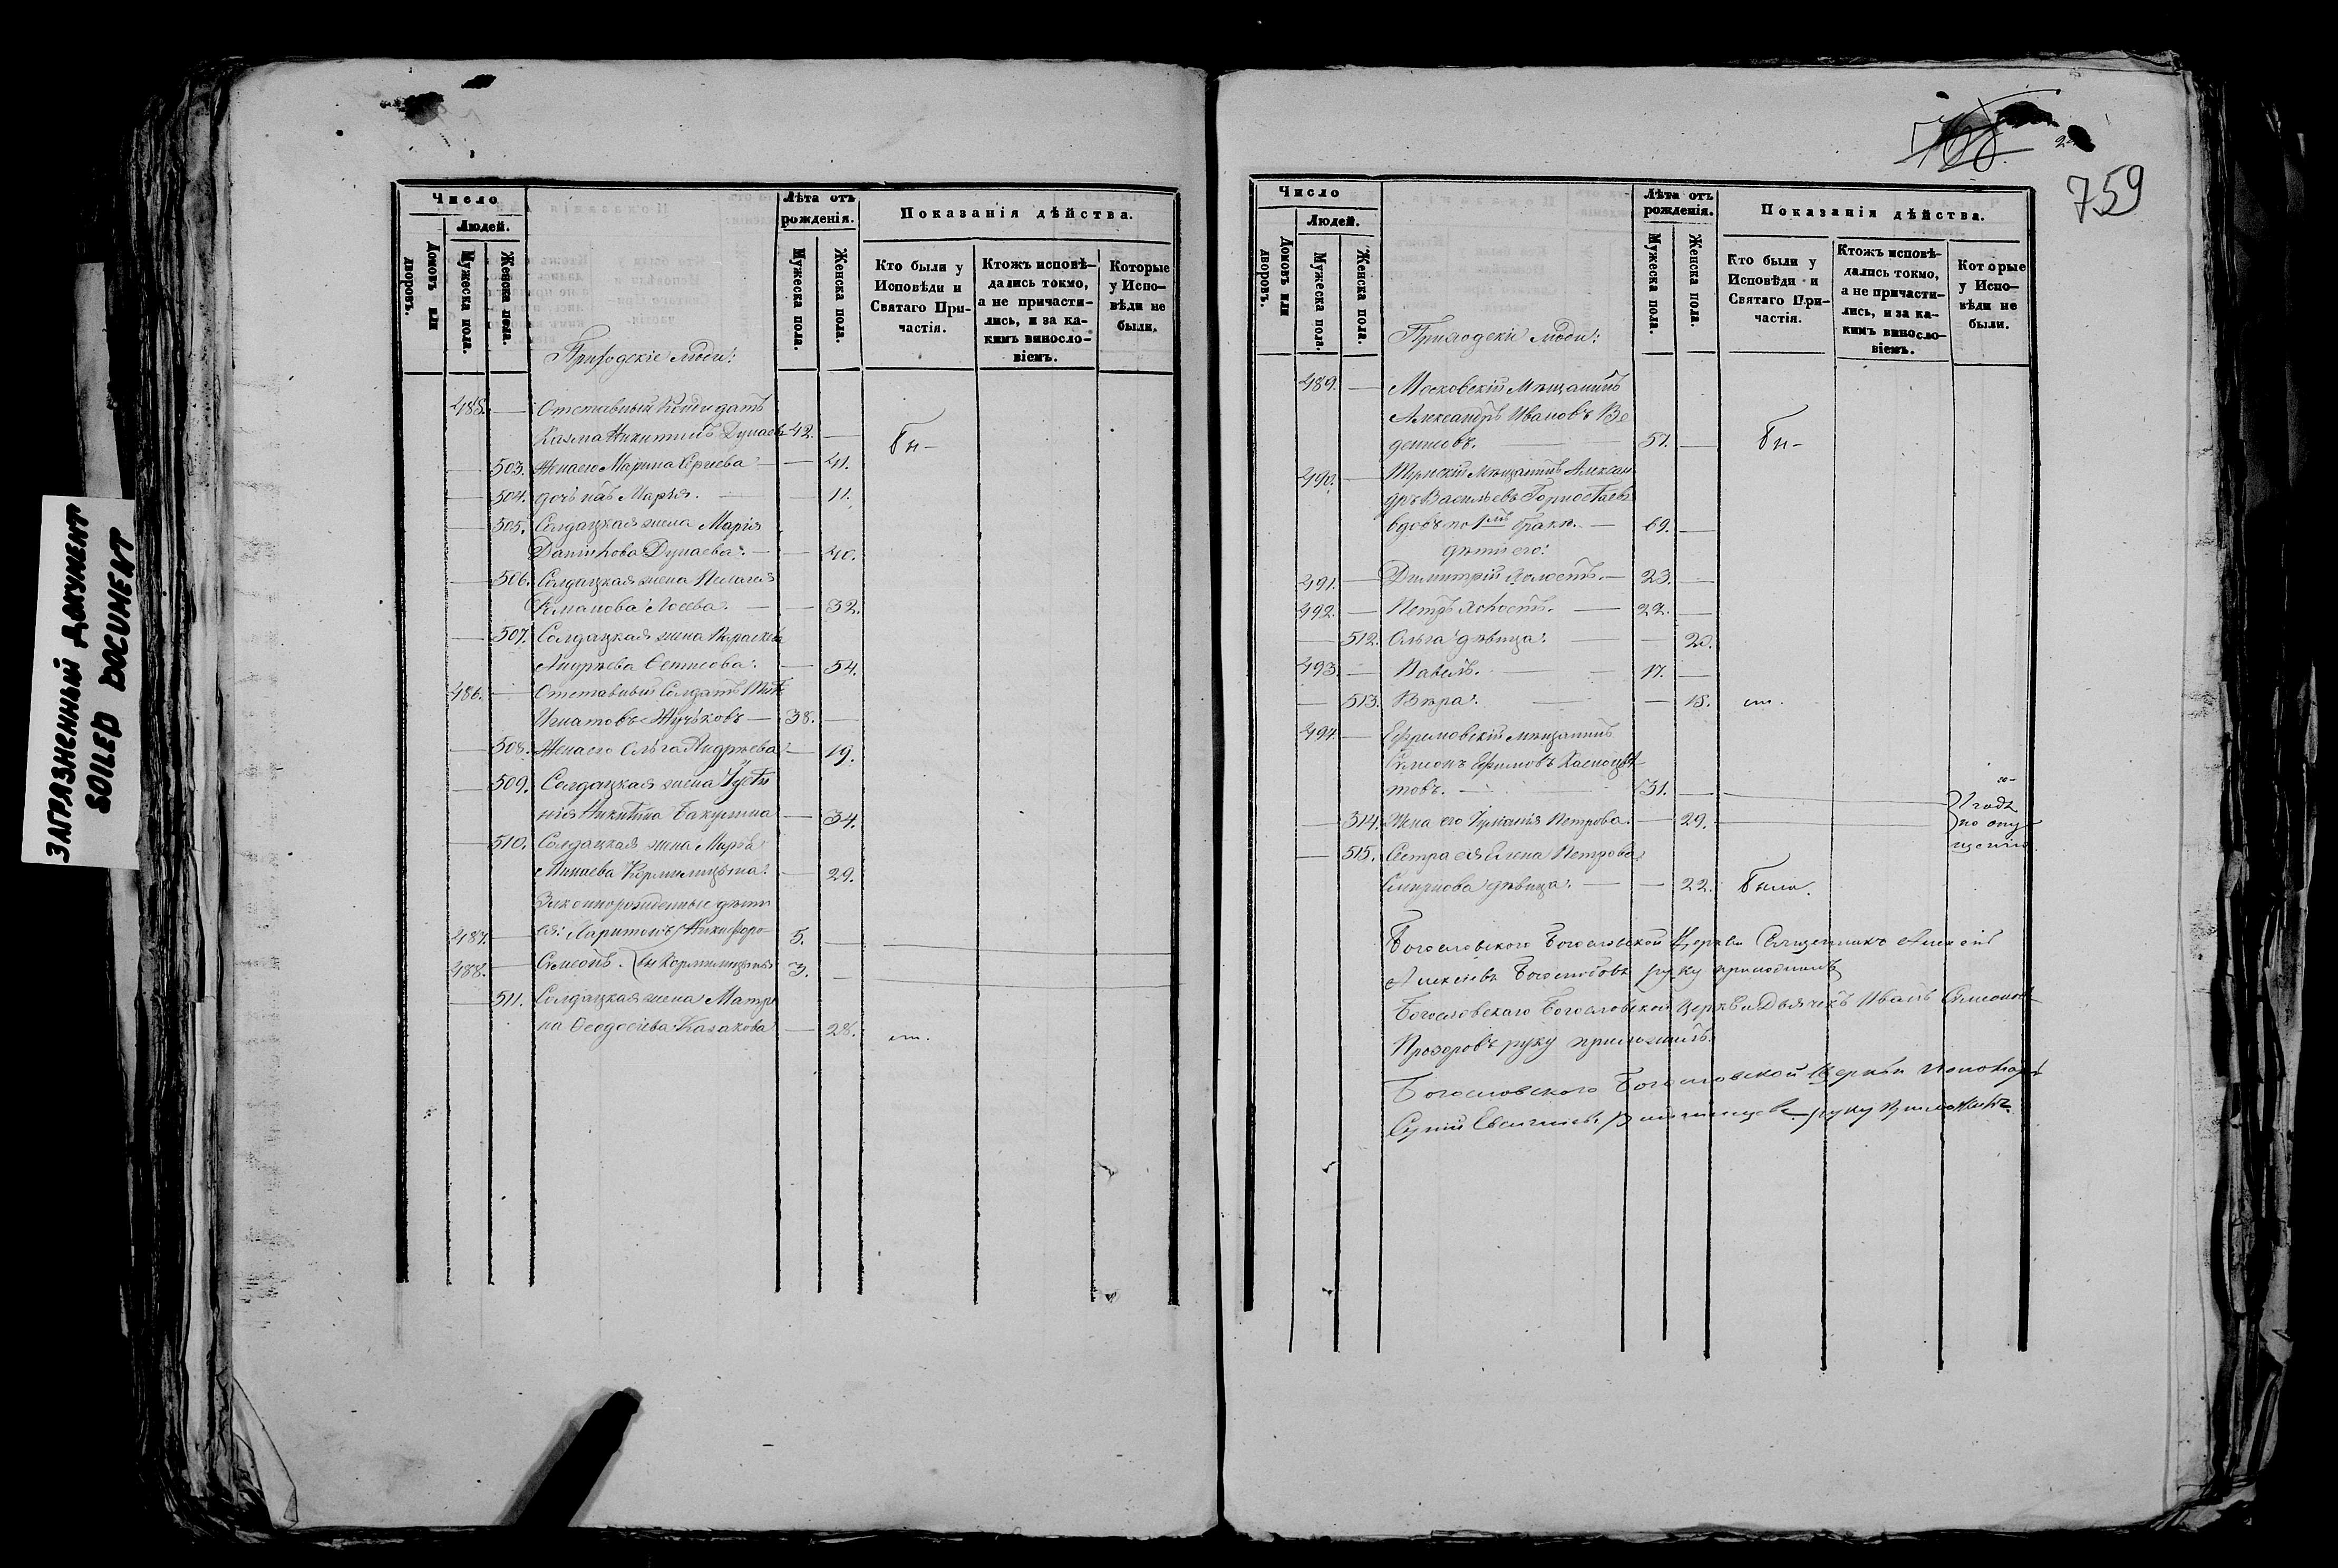 ЗАГРЯЗНЕННЫЙ ДОКУМЕНТ
SOILED DOCUMENT
Число
Людей.
Домовъ или дворовъ.
Мужеска пола.
Женска пола.
Приходскіе люди:
Лѣта отъ рожденія.
Мужеска пола.
Женска пола.
Показанія дѣйства.
Кто были у Исповѣди и Святаго Причастія.
Ктожъ исповѣдались токмо, а не причастились, и за какимъ винословіемъ.
Которые у Исповѣди не были.
Отставный
Козма Никитинъ Дунаевъ 42. Бы-
503. Жена его Марина Сергиева 41.
504. дочь ихъ Марья. 11.
505. Солдацкая жена Марія
Данилова Дунаева. 40.
506. Солдацкая жена Пелагея
Романова Лосева. 32.
507. Солдацкая жена
Андреева 54.
486. Отставный Солдатъ
Игнатовъ Жучковъ 38.
508. Жена его Ольга Андреева 19.
509. Солдацкая жена Усти
нія Никитина Бакулина 34.
510. Солдацкая жена Марѳа
Минаева Кормилицына. 29.
Законнорожденные дѣти
487. ея: Харитонъ 5.
488. Симеонъ. 3.
511. Солдацкая жена Матре
на Ѳеодосіева Казакова 28.
759
Число
Людей.
Домовъ или дворовъ.
Мужеска пола.
Женска пола.
Приходскіе люди:
Лѣта отъ рожденія.
Мужеска пола.
Женска пола.
Показанія дѣйства.
Кто были у Исповѣди и Святаго Причастія.
Ктожъ исповѣдались токмо, а не причастились, и за какимъ винословіемъ.
Которые у Исповѣди не были.
489. Московскій Мѣщанинъ
Александръ Ивановъ Ве
денисовъ. 51. Бы-
490. Мѣщанинъ Алексан
дръ Васильевъ Горностаевъ
вдовъ по 1мъ бракѣ. 69.
дѣти его:
491. Димитрій холостъ. 23.
492. Петръ холостъ. 22.
512. Ольга дѣвица. 20.
493. Павелъ. 17.
513. Вѣра. 15.
494. Ефремовскій мѣщанинъ
Симеонъ Ефимовъ
товъ. 31.
514. Жена его Петрова. 29.
1 годъ
по опу
щенію
515. Сестра ея Елена Петрова
Смирнова дѣвица. 22. Была.
Богословского Богословской Церкви Священникъ Алексій
Алексіевъ Боголюбовъ руку приложилъ
Богословскаго Богословской Церкви Дьячекъ Иванъ Симеоновъ
Прозоровъ руку приложилъ.
Богословского Богословской Церкви Пономарь
Сергій руку приложилъ.